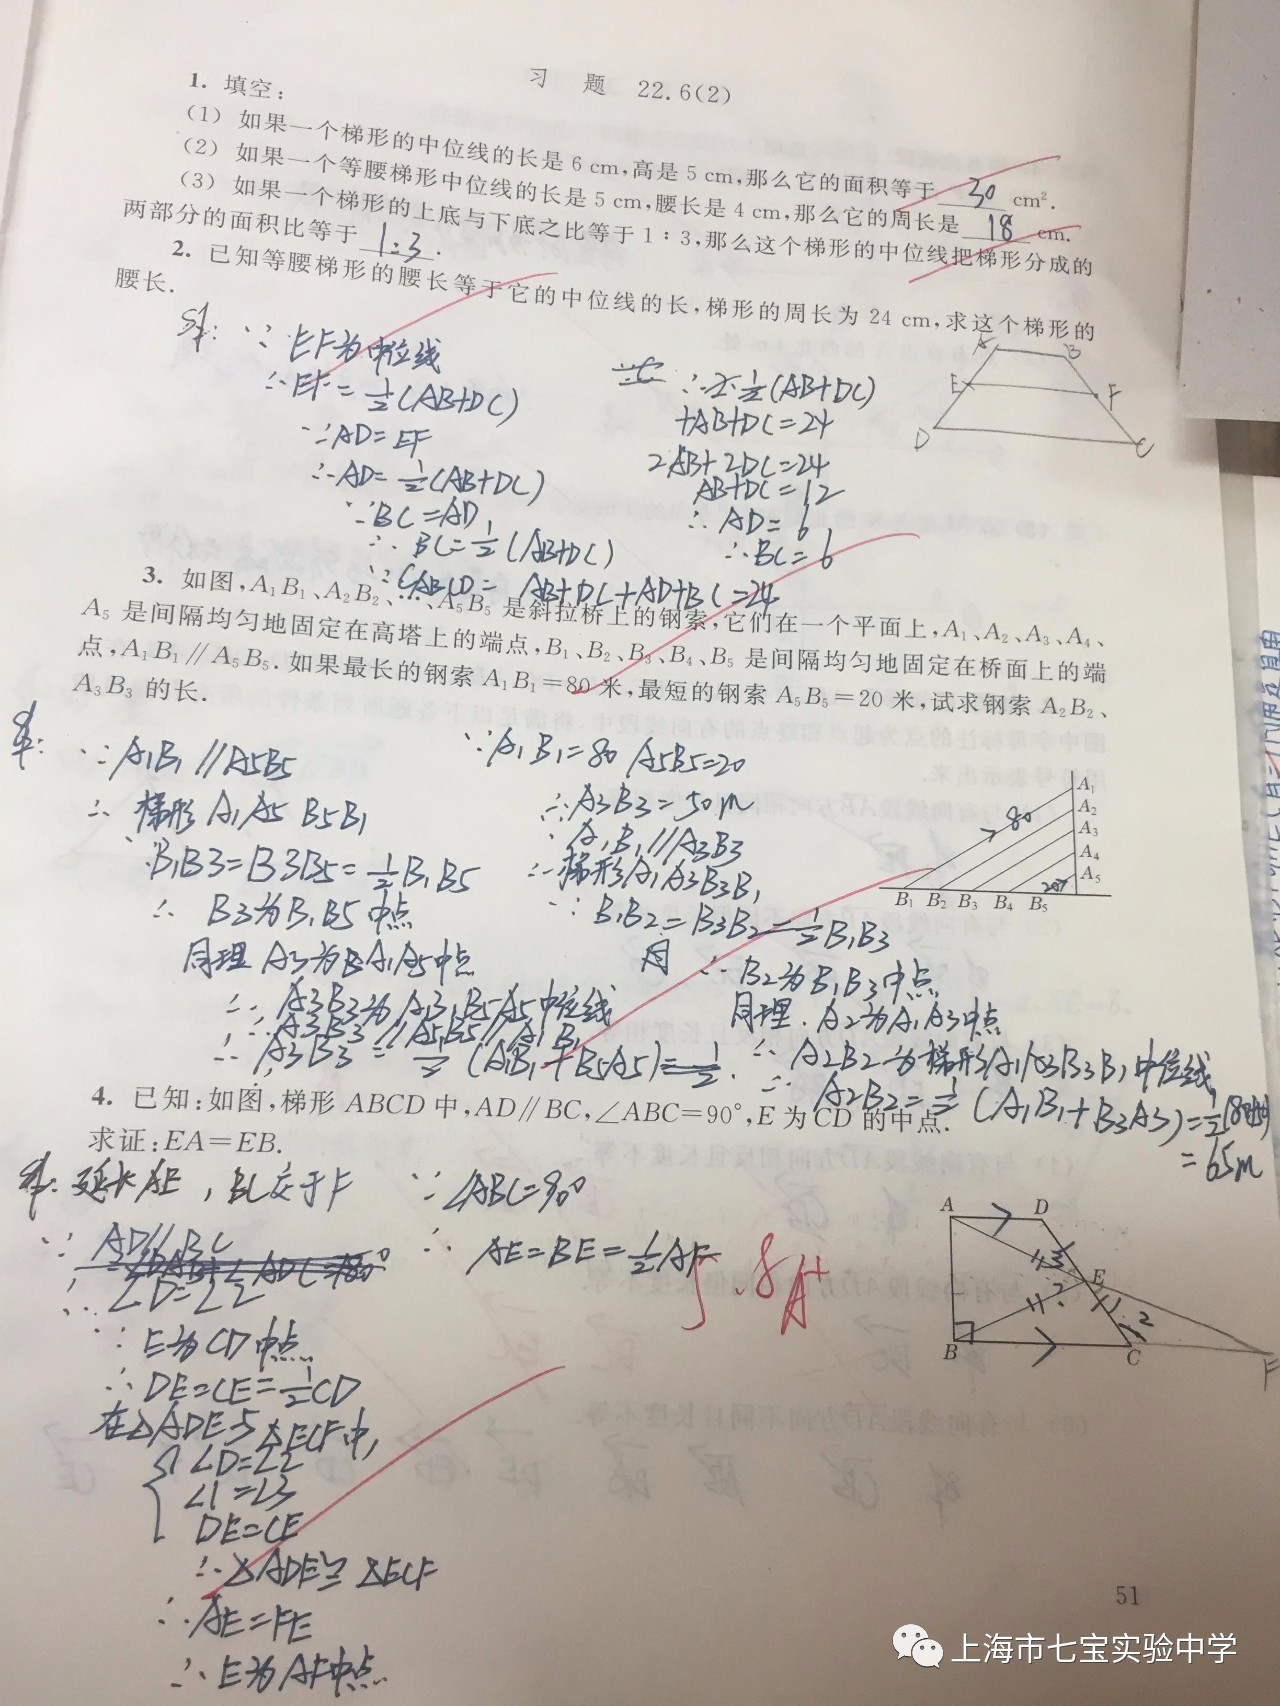 习 题 22.6(2)
1. 填空:
(1) 如果一个梯形的中位线的长是 6 cm,高是 5 cm,那么它的面积等于 30 cm².
(2) 如果一个等腰梯形中位线的长是 5 cm,腰长是 4 cm,那么它的周长是 18 cm.
(3) 如果一个梯形的上底与下底之比等于 1:3,那么这个梯形的中位线把梯形分成的
两部分的面积比等于 1:3.
2. 已知等腰梯形的腰长等于它的中位线的长,梯形的周长为 24 cm,求这个梯形的
腰长.
∵ EF为中位线
∴EF=½(AB+DC)
∵AD=EF
∴AD=½(AB+DC)
∵BC=AD
∴BC=½(AB+DC)
∵CABCD= AB+DC+AD+BC=24
∴2·½(AB+DC)
+AB+DC=24
2AB+2DC=24
AB+DC=12
∴ AD=6
∴BC=6
A B
E F
D C
3. 如图,A₁B₁、A₂B₂、…、A₅B₅ 是斜拉桥上的钢索,它们在一个平面上,A₁、A₂、A₃、A₄、
A₅ 是间隔均匀地固定在高塔上的端点,B₁、B₂、B₃、B₄、B₅ 是间隔均匀地固定在桥面上的端
点,A₁B₁∥A₅B₅.如果最长的钢索 A₁B₁=80 米,最短的钢索 A₅B₅=20 米,试求钢索 A₂B₂、
A₃B₃ 的长.
∵A₁B₁∥A5B5
∴ 梯形 A₁A5 B5B₁
∵B₁B3=B3B5=½B₁B5
∴ B3为B₁B5中点
同理 A3为A₁A5中点
∴ A3B3为A₁B₁B5A5中位线
∴A3B3∥A5B5∥A₁B₁
∴ A3B3=½(A₁B₁+B5A5)=½
∵A₁B₁=80 A5B5=20
∴A3B3=50m
∵A₁B₁∥A3B3
∴梯形A₁A3B3B₁
∵B₁B2=B3B2=½B₁B3
∴B2为B₁B3中点
同理.A2为A₁A3中点
∴A2B2为梯形A₁A3B3B₁中位线
∴A2B2=½(A₁B₁+B3A3)=½(80+50)
=65m
80
20
A₁
A₂
A₃
A₄
A₅
B₁ B₂ B₃ B₄ B₅
4. 已知:如图,梯形 ABCD 中,AD∥BC,∠ABC=90°,E 为 CD 的中点.
求证:EA=EB.
延长AE,BC交于F
∵ AD∥BC
∴∠D=∠2
∵ E为CD中点
∴DE=CE=½CD
在△ADE与△ECF中,
∠D=∠2
∠1=∠3
DE=CE
∴△ADE≌△ECF
∴AE=FE
∴E为AF中点
∵∠ABC=90°
∴ AE=BE=½AF
5.8 A+
A D
3
E
? 1 2
B C F
51
上海市七宝实验中学